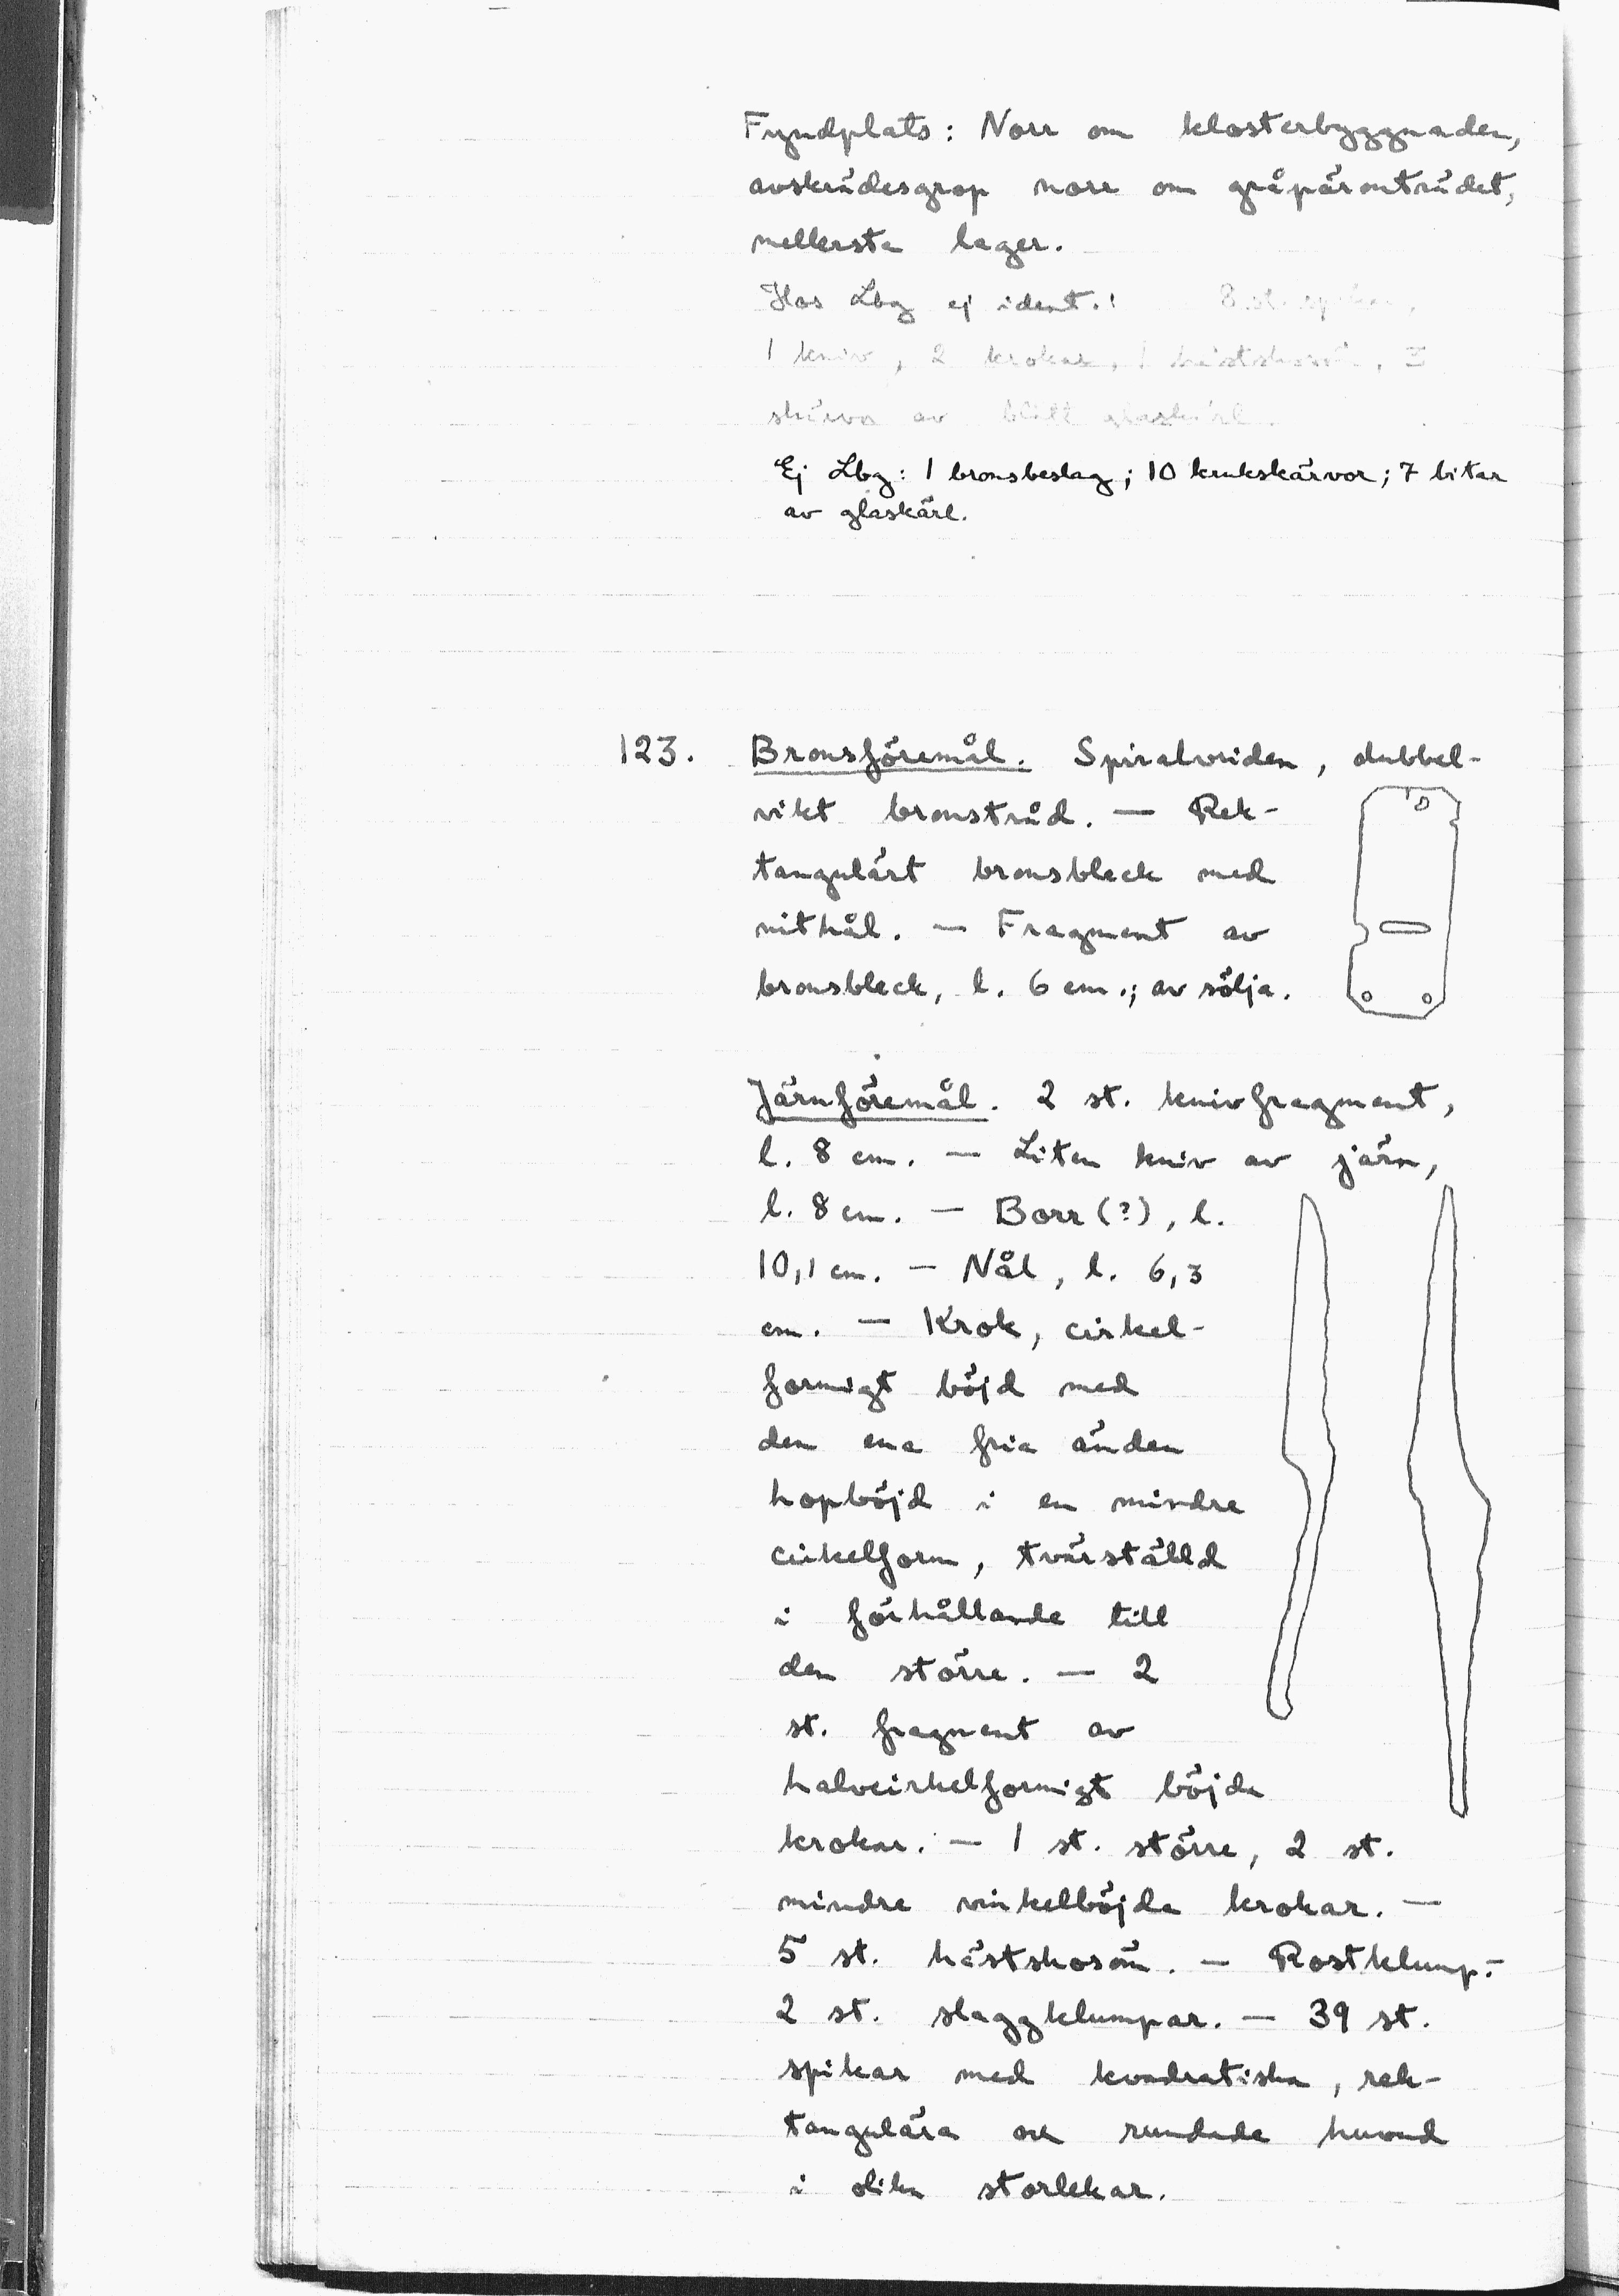 Fyndplats: Norr om klosterbyggnaden,
avskrädesgrop norr om gråpäronträdet,
mellersta lager.
Hos Lbg ej ident.: 8 st. spikar,
1 kniv, 2 krokar, 1 hästskosöm, 3
skärvor av blått glaskärl.
Ej Lbg: 1 bronsbeslag; 10 krukskärvor; 7 bitar
av glaskärl.
123. Bronsföremål. Spiralvriden, dubbel-
vikt bronstråd. — Rek-
tangulärt bronsbleck med
nithål. — Fragment av
bronsbleck, l. 6 cm.; av sölja.
Järnföremål. 2 st. knivfragment,
l. 8 cm. — Liten kniv av järn,
l. 8 cm. — Borr (?), l.
10,1 cm. — Nål, l. 6,3
cm. — Krok, cirkel-
formigt böjd med
den ena fria änden
hopböjd i en mindre
cirkelform, tvärställd
i förhållande till
den större. — 2
st. fragment av
halvcirkelformigt böjda
krokar. — 1 st. större, 2 st.
mindre vinkelböjda krokar. —
5 st. hästskosöm. — Rostklump. -
2 st. slaggklumpar. — 39 st.
spikar med kvadratiska, rek-
tangulära och rundade huvud
i olika storlekar.